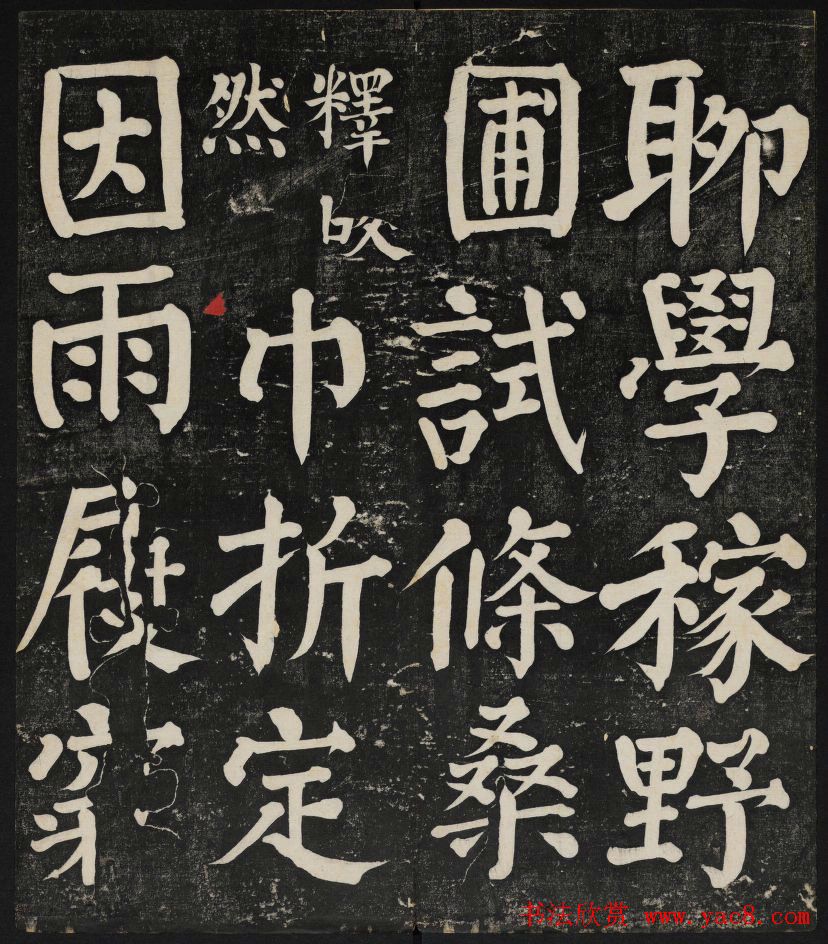 聊學稼野
圃試條桑
釋皎
然
巾折定
因雨履穿
书法欣赏 www.yac8.com